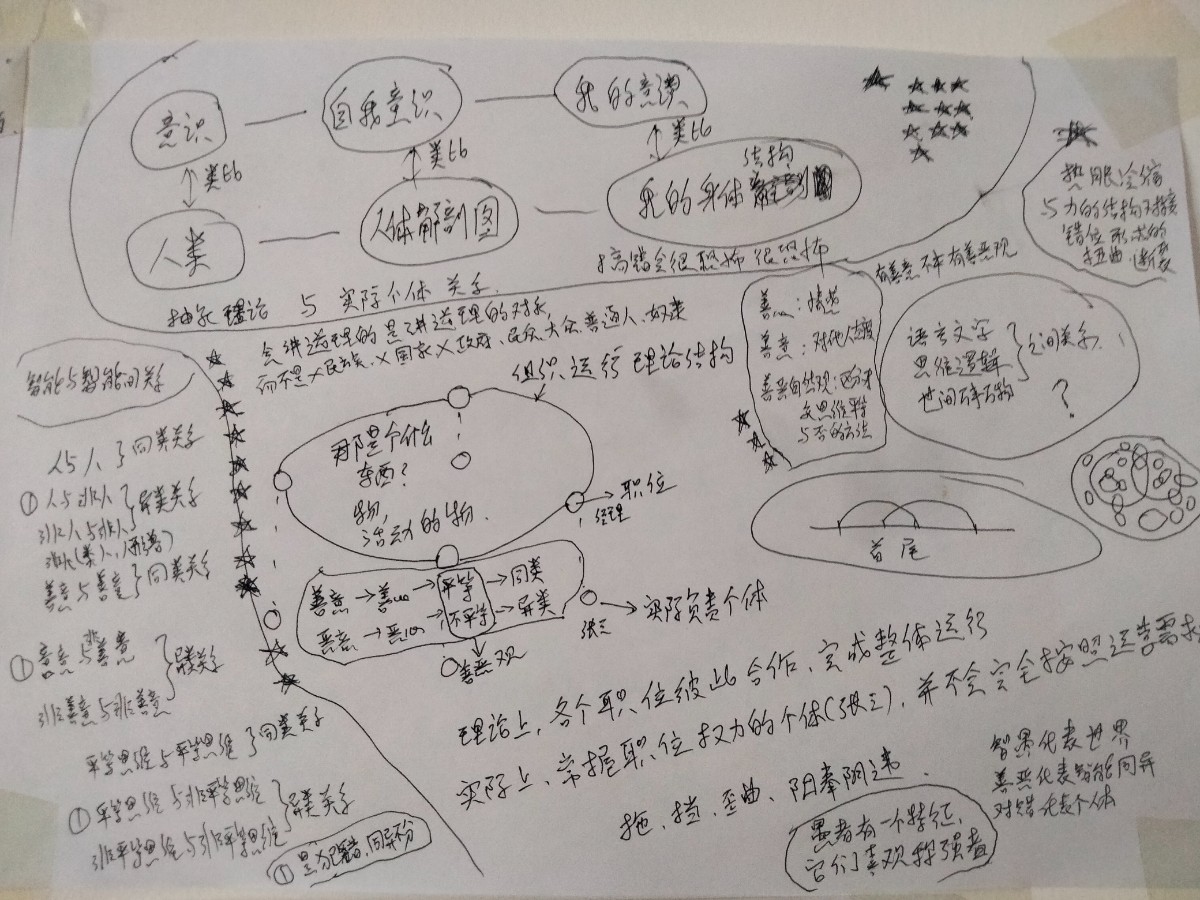 意识
自我意识
我的意识
类比
类比
类比
人类
人体解剖图
结构
我的身体
搞错会很恐怖很恐怖
抽象理论 与 实际个体 关系
热胀冷缩
与力的结构对接
错位形成的
扭曲
有善意才有善恶观
会讲道理的是讲道理的对象,
而不是X民族、X国家X政府、民众、大众、普通人、奴隶
组织运行理论结构
善心:情感
善意:对他人态度
善恶自然观:区分才
与否的方法
语言文字
思维逻辑
世间碎石物
之间关系
?
智能与智能间关系
人与人}同类关系
①人与非人
非人与非人
}异类关系
善意与善意}同类关系
①善意与非善意
非善意与非善意
}异类关系
平等思维与平等思维}同类关系
①平等思维与非平等思维
非平等思维与非平等思维
}异类关系
那是个什么
东西?
物,
活动的物.
职位
经理
善意→善心→平等→同类
恶意→恶心→不平等→异类
善恶观
张三
实际负责个体
首尾
理论上,各个职位彼此合作、完成整体运行
实际上、掌握职位权力的个体(张三),并不会完全按照运营需求
拖、挡、歪曲、阳奉阴违.
智界代表世界
善恶代表智能同异
对错代表个体
愚者有一个特征,
它们喜欢称强者